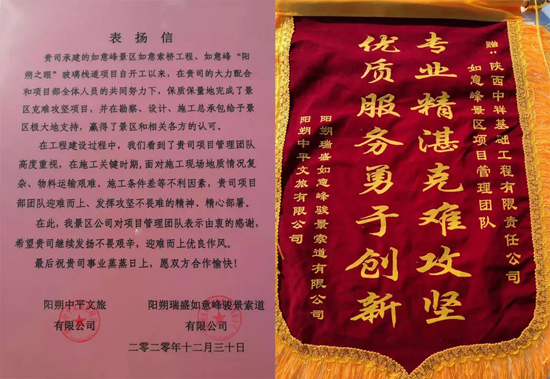 表扬信
贵司承建的如意峰景区如意索桥工程、如意峰“阳
朔之眼”玻璃栈道项目自开工以来，在贵司的大力配合
和项目部全体人员的共同努力下，保质保量地完成了景
区克难攻坚项目，并在勘察、设计、施工总承包给予景
区极大地支持，赢得了景区和相关各方的认可。
在工程建设过程中，我们看到了贵司项目管理团队
高度重视，在施工关键时期，面对施工现场地质情况复
杂、物料运输艰难、施工条件差等不利因素，贵司项目
部团队迎难而上、发挥攻坚不畏难的精神、精心部署。
在此，我景区公司对项目管理团队表示由衷的感谢，
希望贵司继续发扬不畏艰辛，迎难而上优良作风。
最后祝贵司事业蒸蒸日上，愿双方合作愉快！
阳朔中平文旅
有限公司
阳朔瑞盛如意峰骏景索道
有限公司
二零二零年十二月三十日
赠：陕西中祥基础工程有限责任公司
如意峰景区项目管理团队
专业精湛克难攻坚
优质服务勇于创新
阳朔瑞盛如意峰骏景索道有限公司
阳朔中平文旅有限公司